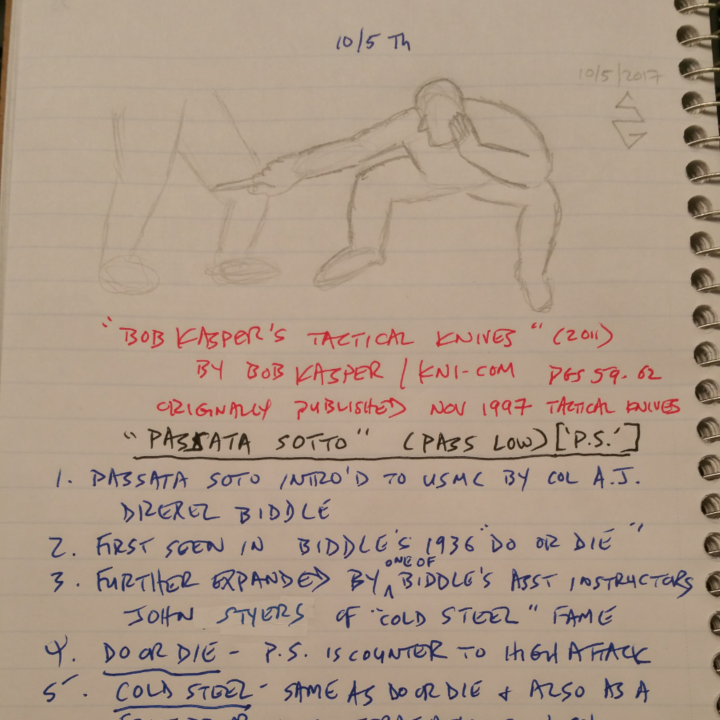 10/5 Th
10/5/2017
"BOB KASPER'S TACTICAL KNIVES" (2011)
BY BOB KASPER / KNI-COM PGS 59-62
ORIGINALLY PUBLISHED NOV 1997 TACTICAL KNIVES
"PASSATA SOTTO" (PASS LOW) ['P.S.']
1. PASSATA SOTO INTRO'D TO USMC BY COL A.J.
DREXEL BIDDLE
2. FIRST SEEN IN BIDDLE'S 1936 "DO OR DIE"
3. FURTHER EXPANDED BY ONE OF BIDDLE'S ASST INSTRUCTORS
JOHN STYERS OF "COLD STEEL" FAME
4. DO OR DIE - P.S. IS COUNTER TO HIGH ATTACK
5. COLD STEEL - SAME AS DO OR DIE & ALSO AS A